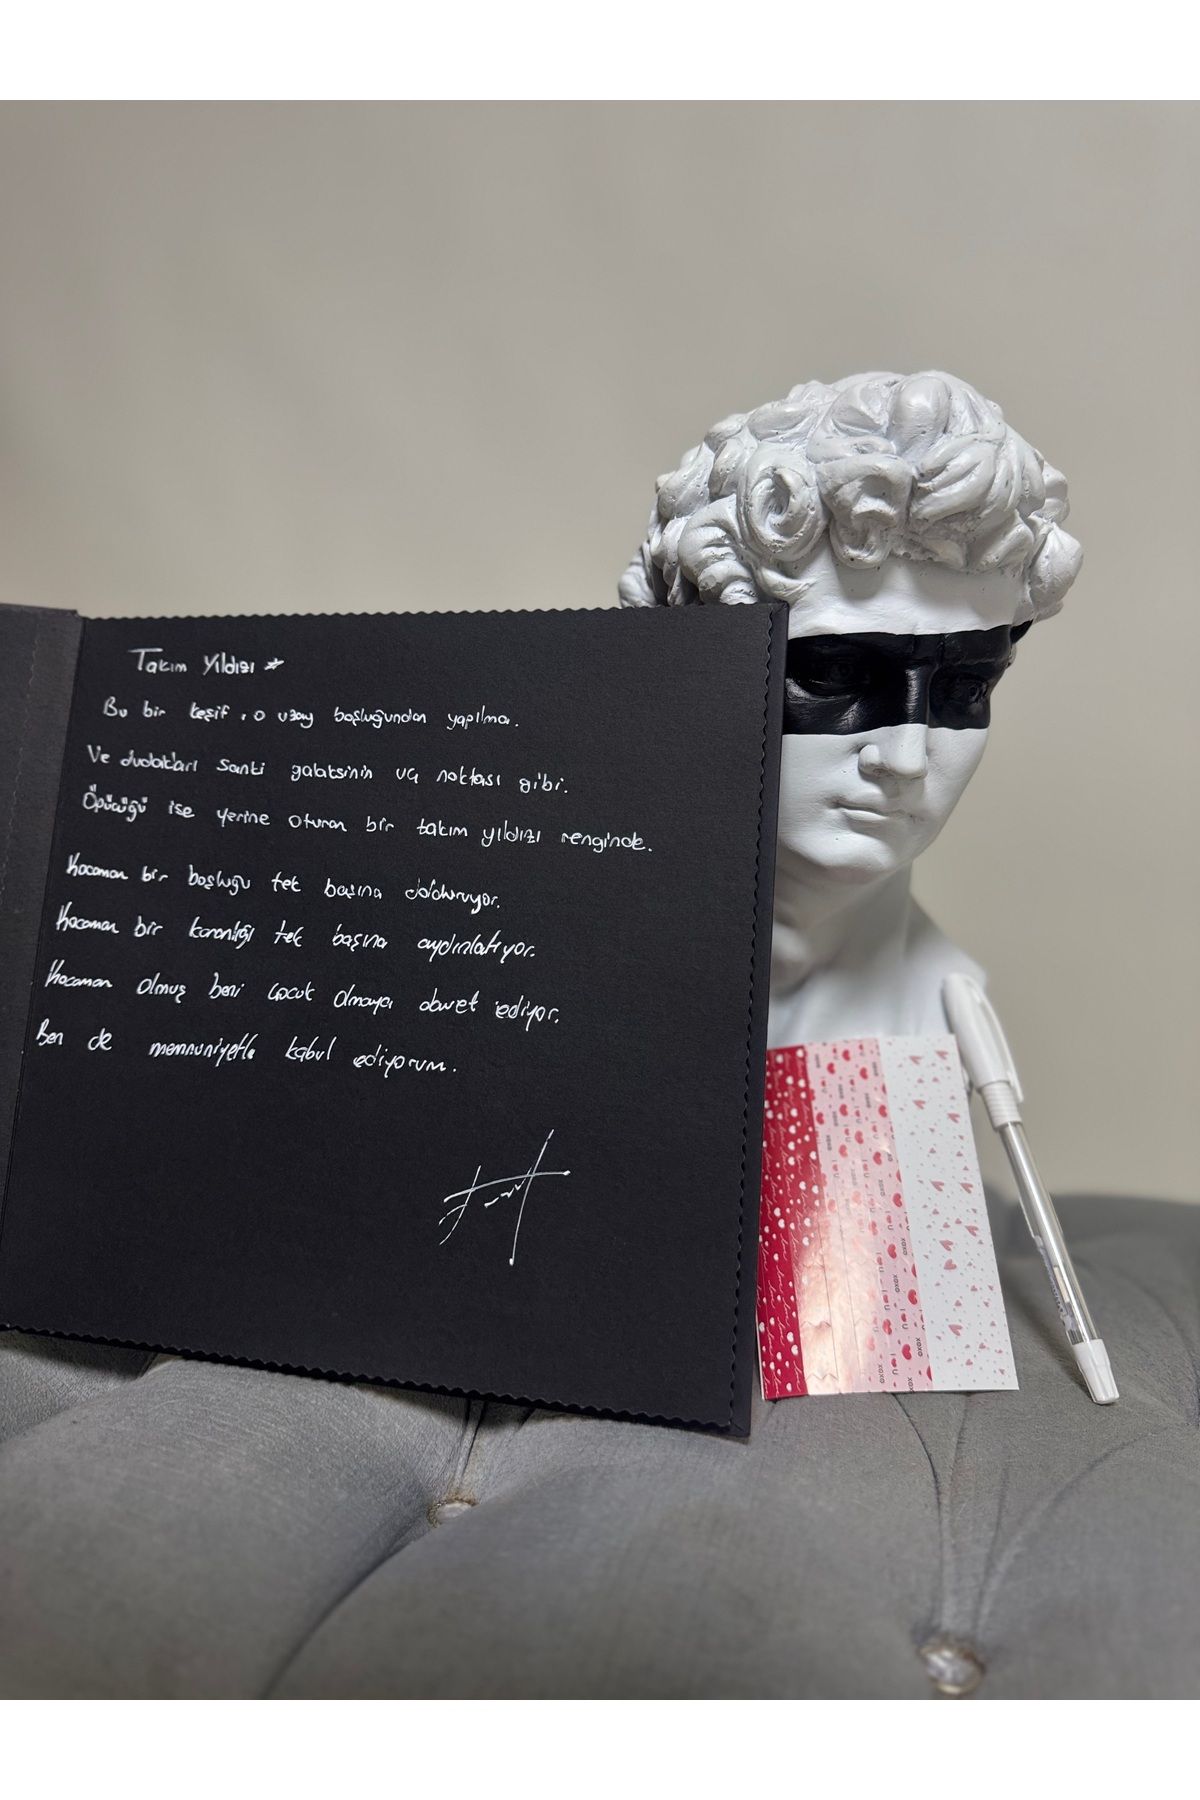 Takım Yıldızı
Bu bir keşif, o uzay boşluğundan yapılma.
Ve dudakları sanki galaksinin uç noktası gibi.
Öpücüğü ise yerine oturan bir takım yıldızı renginde.
Kocaman bir boşluğu tek başına dolduruyor.
Kocaman bir karanlığı tek başına aydınlatıyor.
Kocaman olmuş beni çocuk olmaya davet ediyor.
Ben de memnuniyetle kabul ediyorum.
xoxo